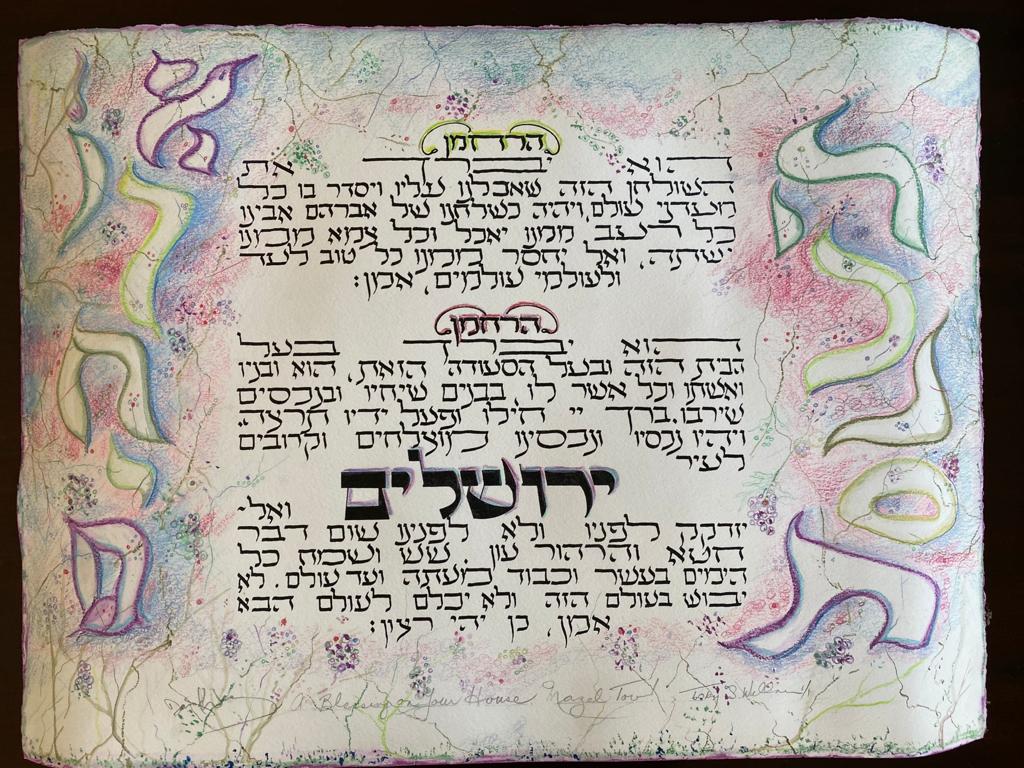 הכנסת
אורחים
הרחמן
הוא יברך את
השולחן הזה שאכלנו עליו ויסדר בו כל
מעדני עולם,ויהיה כשלחנו של אברהם אבינו
כל רעב ממנו יאכל וכל צמא ממנו
ישתה, ואל יחסר ממנו כל טוב לעד
ולעולמי עולמים, אמן:
הרחמן
הוא יברך בעל
הבית הזה ובעל הסעודה הזאת, הוא ובניו
ואשתו וכל אשר לו, בבנים שיחיו ובנכסים
שירבו. ברך יי חילו ופעל ידיו תרצה.
ויהיו נכסיו ונכסינו מוצלחים וקרובים
לעיר
ירושלים
ואל
יזדקק לפניו ולא לפנינו שום דבר
חטא והרהור עון. שש ושמח כל
הימים בעשר וכבוד מעתה ועד עולם. לא
יבוש בעולם הזה ולא יכלם לעולם הבא
אמן, כן יהי רצון:
A Blessing on Your House Mazel Tov